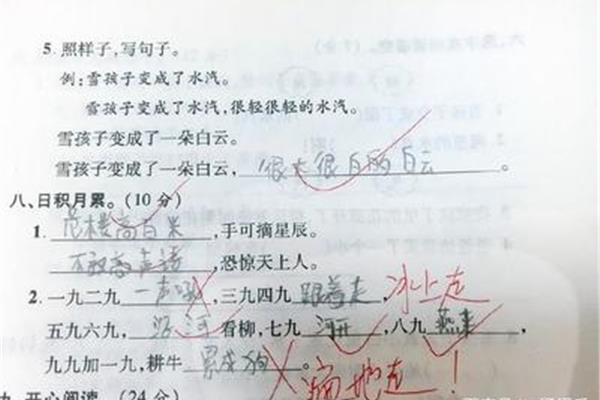 5. 照样子,写句子。
例:雪孩子变成了水汽。
雪孩子变成了水汽,很轻很轻的水汽。
雪孩子变成了一朵白云。
雪孩子变成了一朵白云,很大很白的白云。
八、日积月累。(10 分)
1. 危楼高百米,手可摘星辰。
不敢高声语,恐惊天上人。
2. 一九二九一声吼,三九四九跟着走,冰上走
五九六九,沿河看柳,七九河开,八九燕来,
九九加一九,耕牛累成狗。遍地走!
九、开心阅读。(24 分)